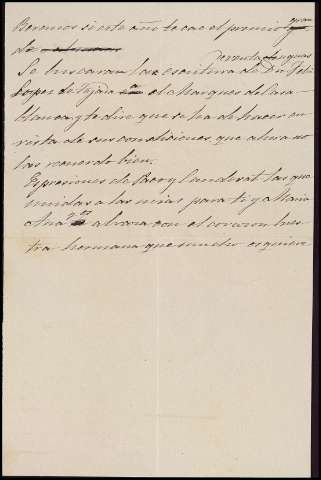 Beremos si este año te cae el premio gran
de
de venta de yeguas
Se buscaran la escritura de Dn Feli
Lopez de Tejada el Marques de Casa
blanca, y te dire que se ha de hacer en
vista de sus condiciones que ahora no
las recuerdo bien.
Espresiones de Paz y Candida las que
unidas a las mias para ti y a Maria
Ana os abraza con el corazon bues
tra hermana que mucho os quiere